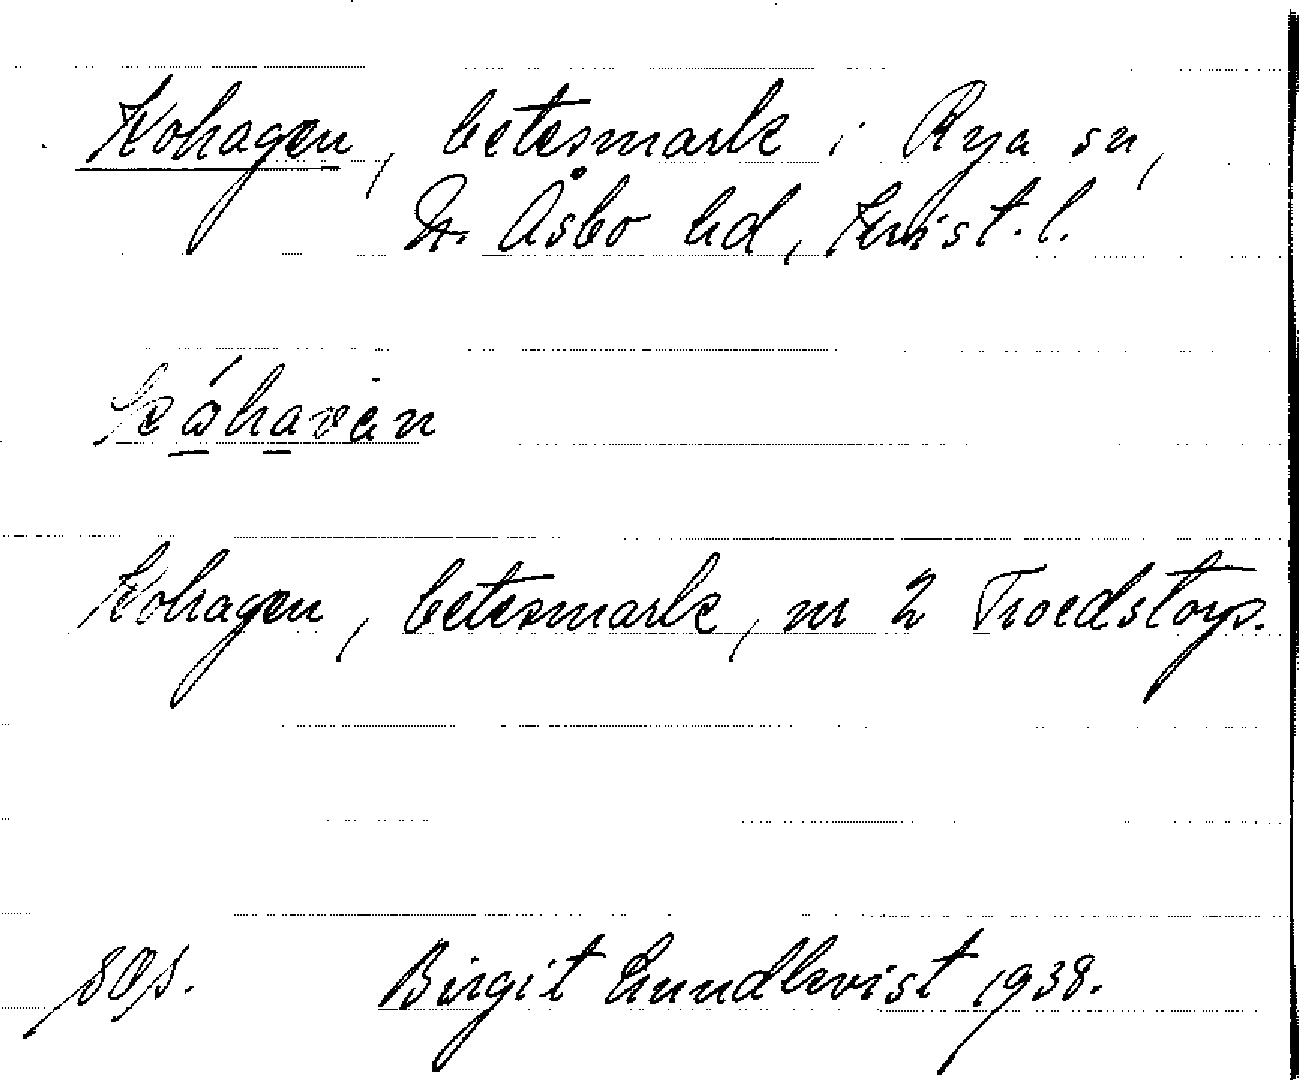 Kohagen, betesmark i Rya sn,
N. Åsbo hd, Krist. l.
Kohagen, betesmark, nr 2 Troedstorp.
Birgit Lundkvist 1938.